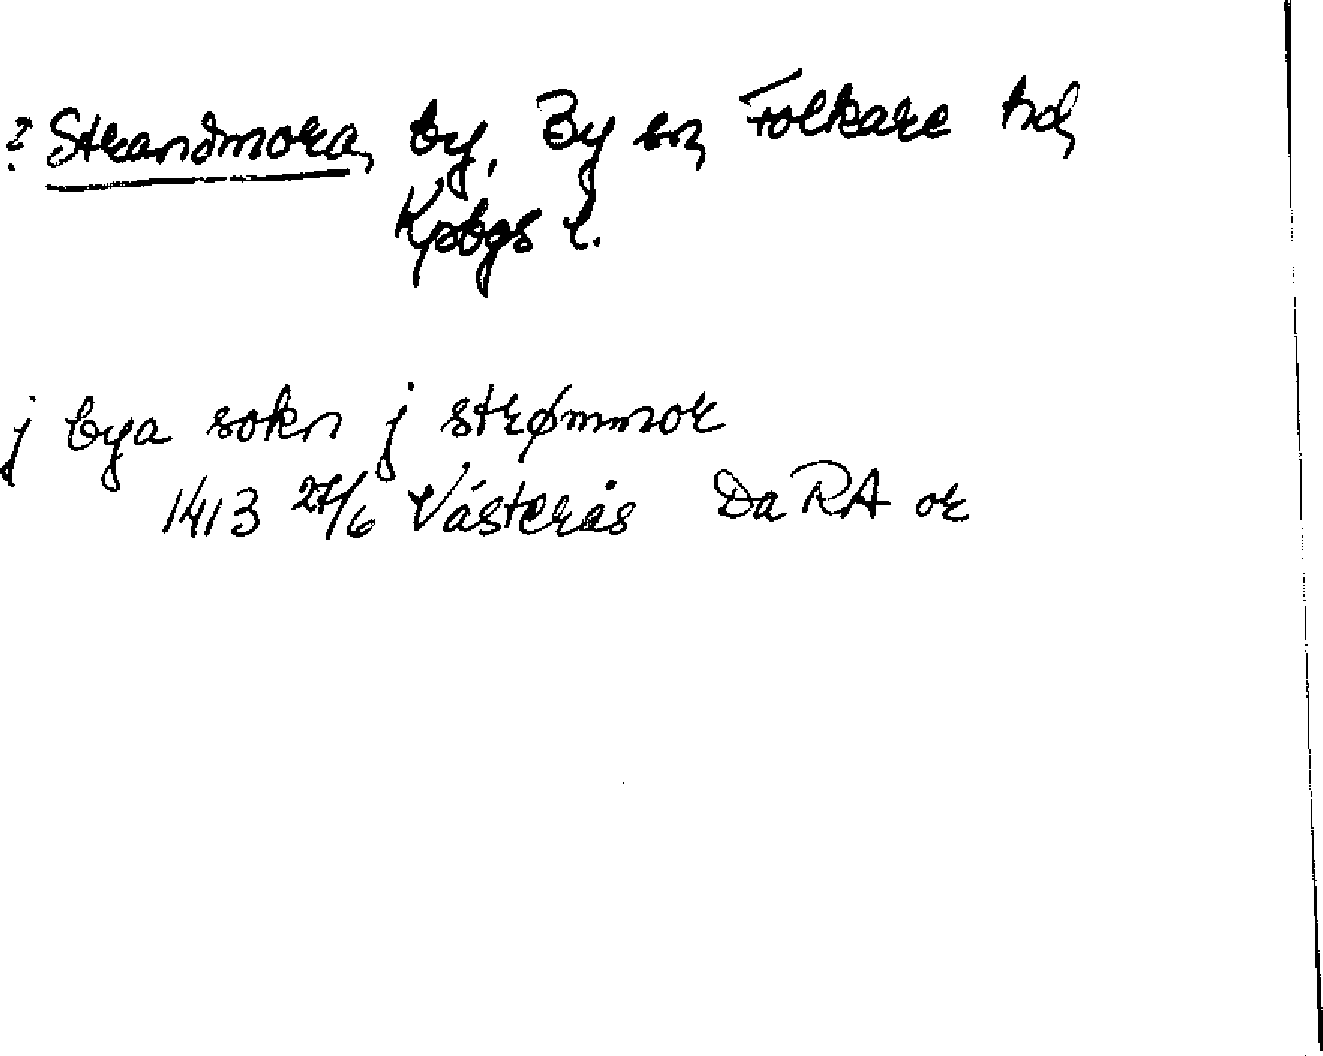 ? Strandmora, by, By sn, Folkare hd,
Kpbgs l.
j bya sokn j strømmor
1413 27/6 Västerås DaRA or